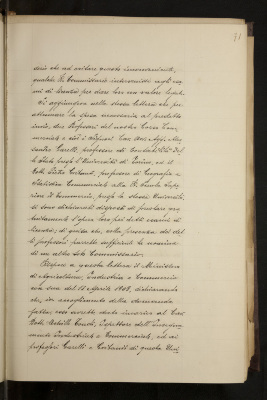 31
desse che ad evitare questo inconveniente,
qualche R. Commissario intervenisse negli esa-
mi di licenza per dare loro un valore legale.
Si aggiungeva nella stessa lettera che per
attenuare la spesa necessaria al predetto
invio, due Professori del nostro Corso Com-
merciale e cioè i Signori Cav. Avv.
Carelli professore di Contabilità di
Stato presso l'Università di Torino, ed il
Dott. Pietro professore di Geografia e
Statistica Commerciale alla R. Scuola Supe-
riore di Commercio, presso la stessa Università,
si sono dichiarati disposti di prestare gra-
tuitamente l'opera loro per detti esami di
licenza; di guisa che, colla presenza dei det-
ti professori sarebbe sufficiente la nomina
di un altro solo Commissario.
Rispose a questa lettera il Ministero
di Agricoltura, Industria e Commercio
con sua del 16 Aprile 1909, dichiarando
che, in accoglimento della domanda
fatta, esso avrebbe dato incarico al Cav.
Dott. Ispettore dell'Insegna-
mento Industriale e Commerciale, ed ai
professori Carelli e di questa Uni-